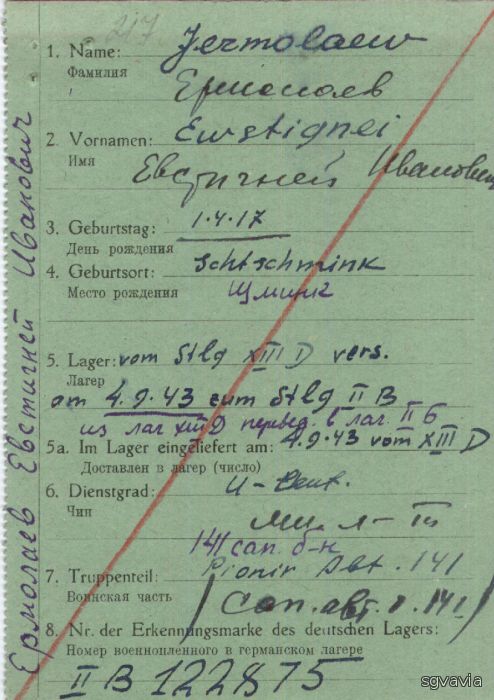 217
1. Name: Jermolaew
Фамилия Ермолаев
2. Vornamen: Ewstignei
Имя Евстигней Иванович
3. Geburtstag: 1.4.17
День рождения
4. Geburtsort: Schtschmink
Место рождения Щминк
5. Lager: vom Stlg XIII D vers.
Лагер
am 4.9.43 zum Stlg II B
из лаг XIII D перевед. в лаг. II Б
5a. Im Lager eingeliefert am: 4.9.43 vom XIII D
Доставлен в лагер (число)
6. Dienstgrad: U-Leut.
Чин
мл. л-т
141 сап. б-н
7. Truppenteil: Pionir Abt. 141
Воинская часть Сап. авт. 141
8. Nr. der Erkennungsmarke des deutschen Lagers:
Номер военнопленного в германском лагере
II B 122875
Ермолаев Евстигней Иванович
sgvavia